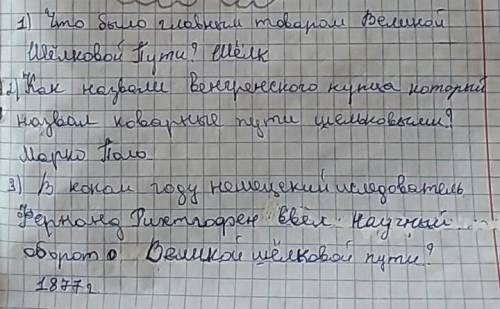 1) Что было главным товаром Великой
Шёлковой Пути? Шёлк
2) Как назвали венгренского купца который
назвал товарные пути шельковыми?
Марко Поло
3) В каком году немецкий иследователь
Фернанд Рихтгофен ввёл научный
оборот о Великой шёлковой пути?
1877г